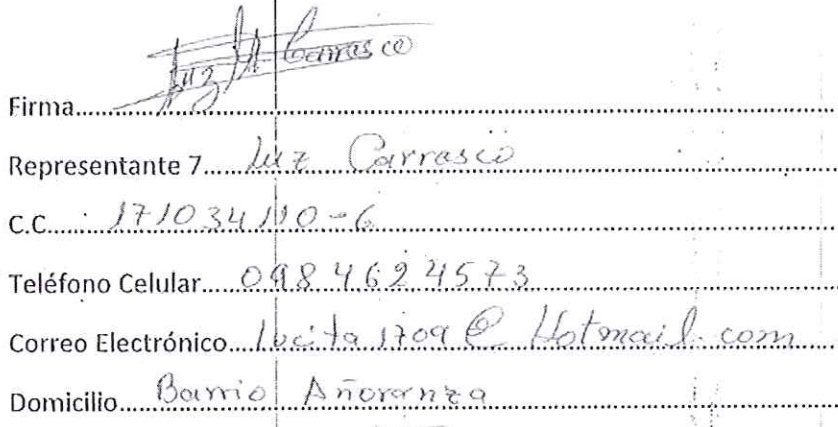 Firma..... Luz M Carrasco
Representante 7..... Luz Carrasco
C.C..... 171034110-6
Teléfono Celular..... 0984624573
Correo Electrónico.... lucita1709@Hotmail.com
Domicilio..... Barrio Añoranza